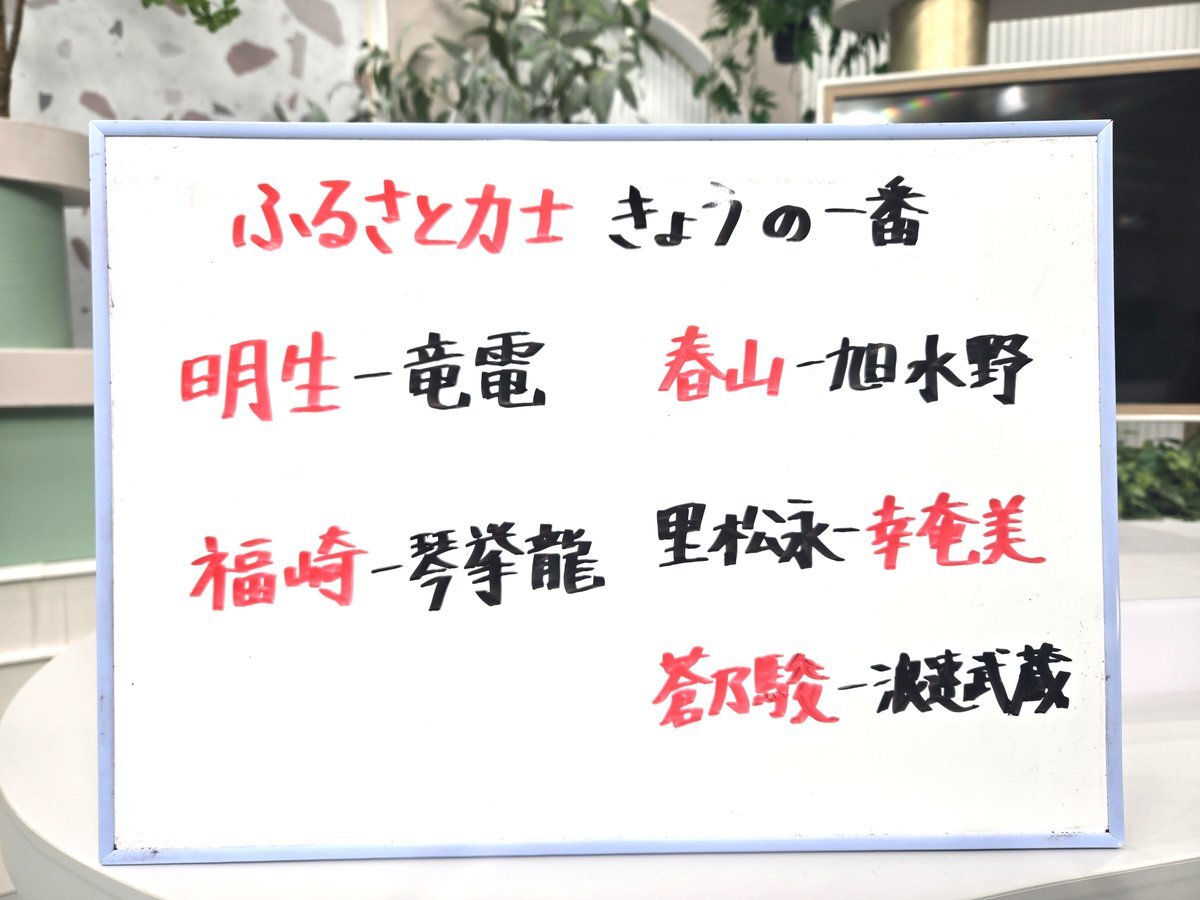 ふるさと力士 きょうの一番
明生ー竜電
福崎ー琴挙龍
春山ー旭水野
里松永ー幸奄美
蒼乃駿ー浪速武蔵